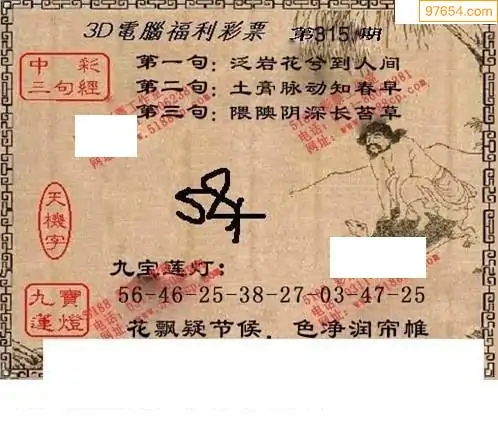 97654.com
3D電腦福利彩票 第315期
中彩三句經
第一句：泛岩花兮到人间
第二句：土膏脉动知春早
第三句：隈隩阴深长苔草
天機字
九寶蓮燈
九宝莲灯：
56-46-25-38-27 03-47-25
花飘疑节候．色净润帘帷